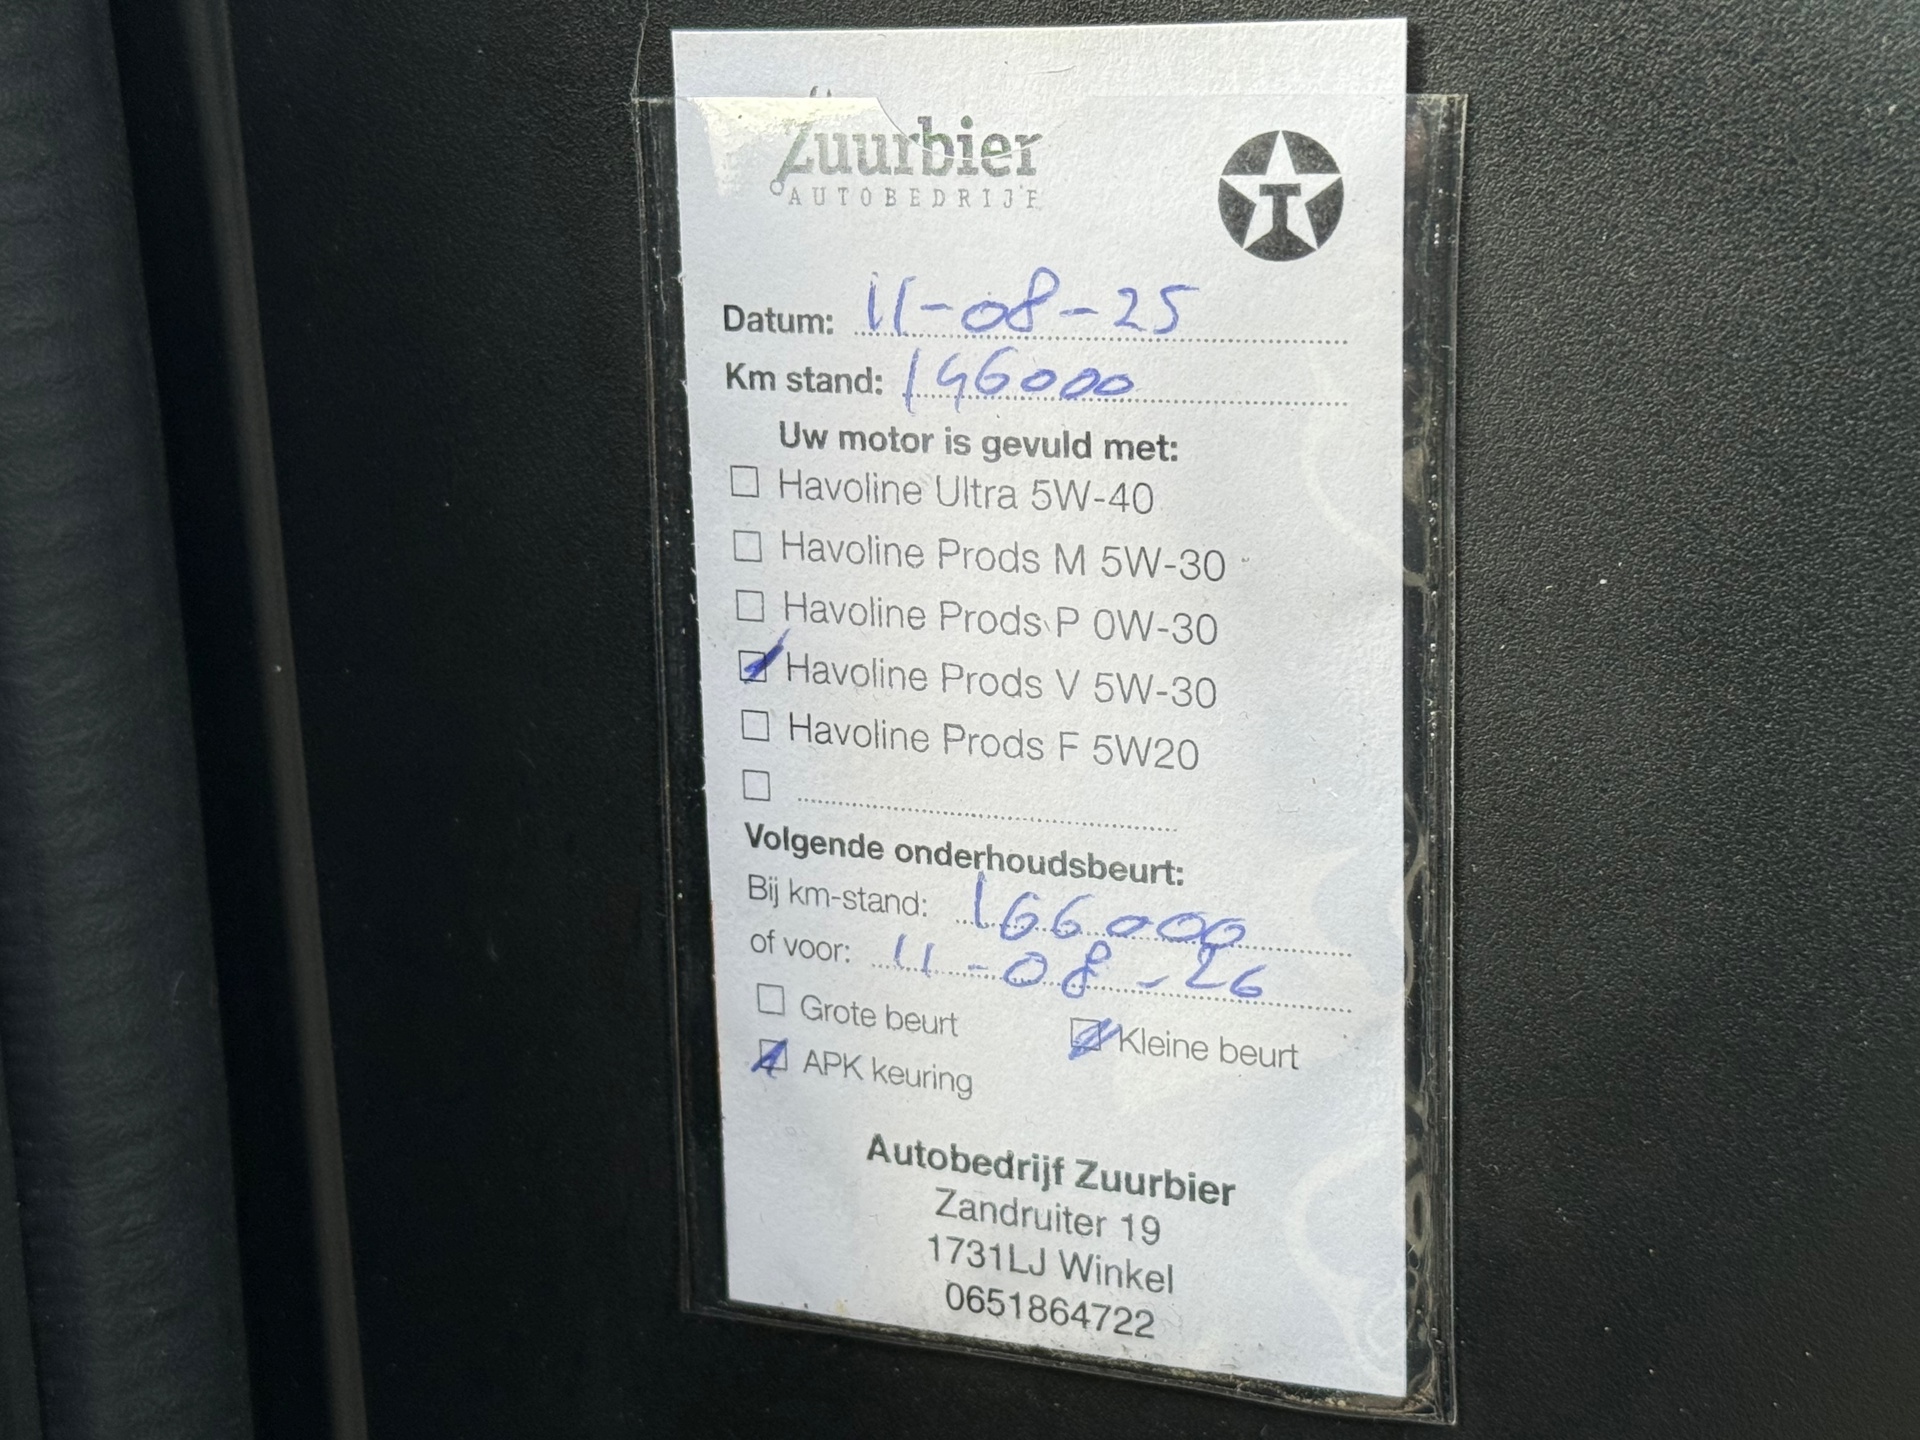 Zuurbier
AUTOBEDRIJF
T
Datum: 11-08-25
Km stand: 146000
Uw motor is gevuld met:
☐ Havoline Ultra 5W-40
☐ Havoline Prods M 5W-30
☐ Havoline Prods P 0W-30
☑ Havoline Prods V 5W-30
☐ Havoline Prods F 5W20
☐
Volgende onderhoudsbeurt:
Bij km-stand: 166000
of voor: 11-08-26
☐ Grote beurt ☑ Kleine beurt
☑ APK keuring
Autobedrijf Zuurbier
Zandruiter 19
1731LJ Winkel
0651864722